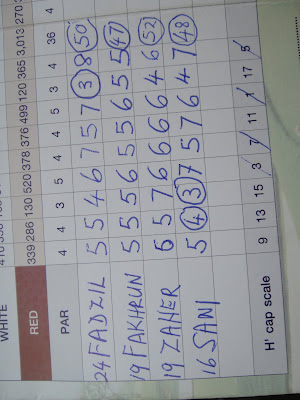 WHITE
RED 339 286 130 520 378 376 499 120 365 3,013 270
PAR 4 4 3 5 4 4 5 3 4 36 4
24 FADZIL 5 5 4 6 7 5 7 3 8 50
19 FAKHRUN 5 5 5 6 5 5 6 5 5 47
19 ZAHER 6 5 7 6 6 6 6 4 6 52
16 SANI 5 4 3 7 5 7 6 4 7 48
H' cap scale 9 13 15 3 7 11 1 17 5